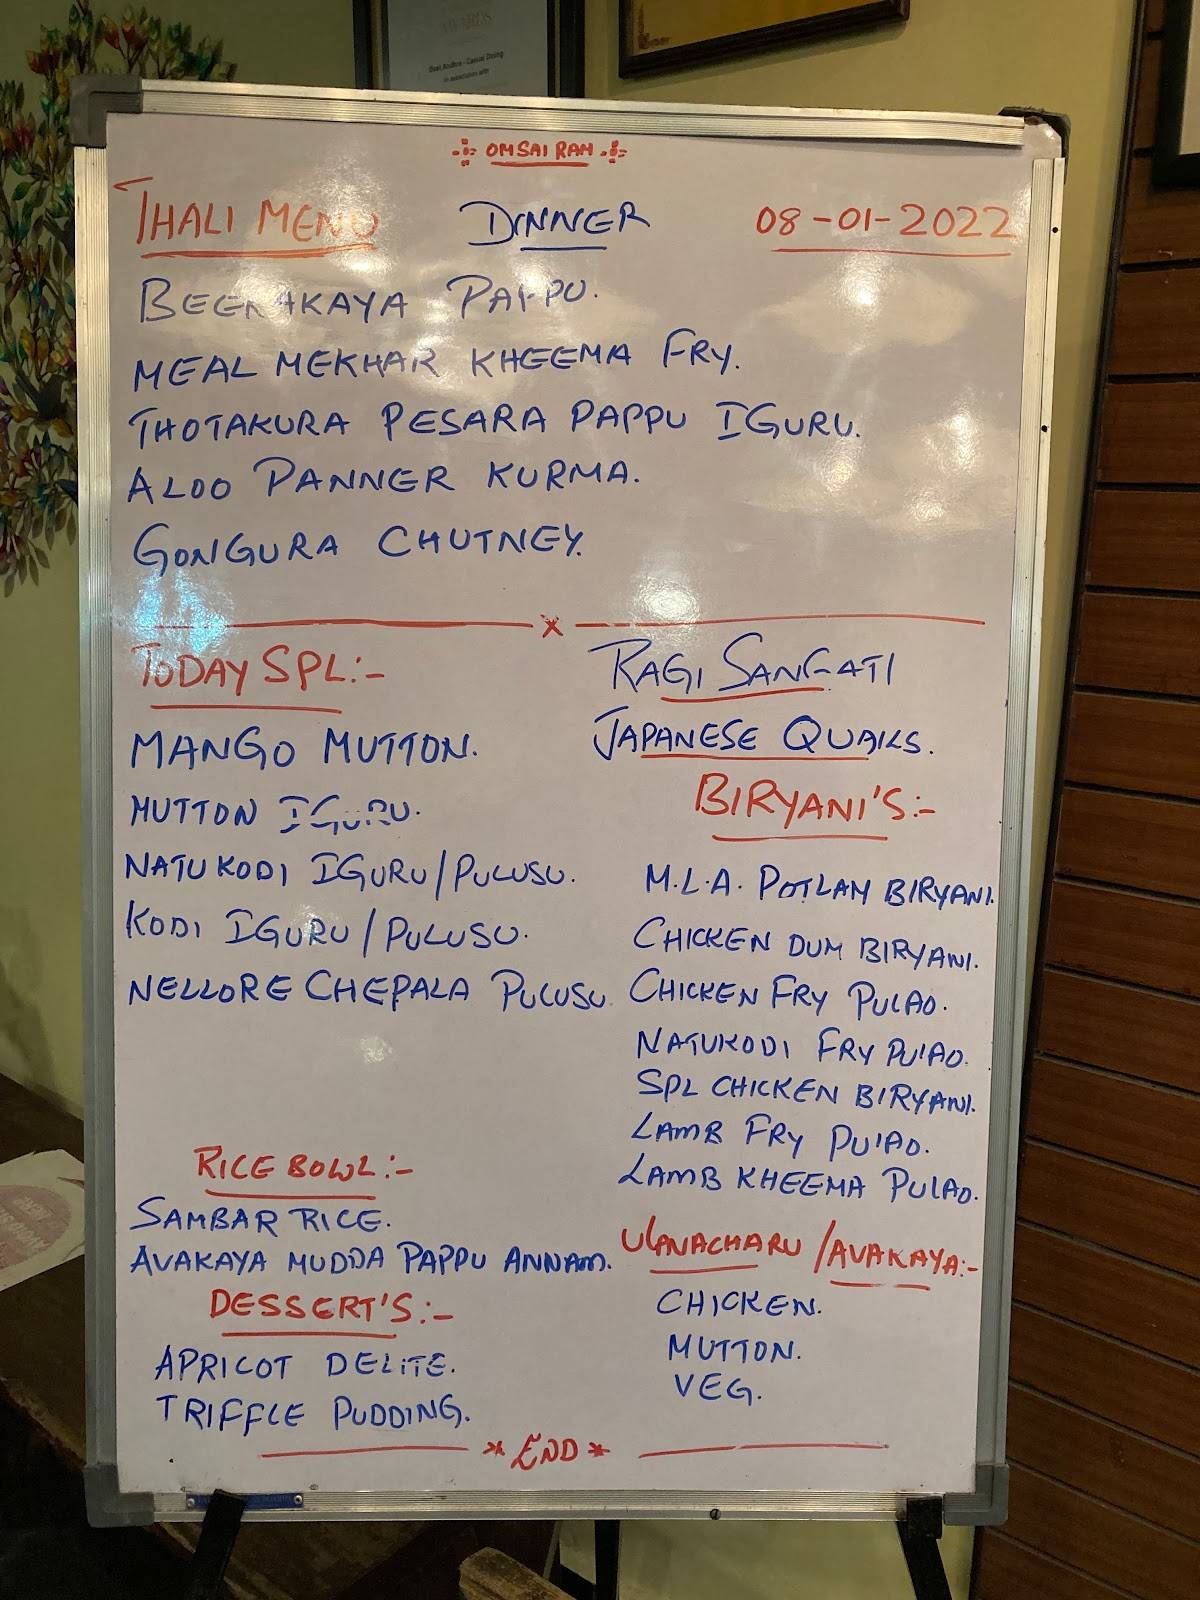 AWARDS
Best Andhra - Casual Dining
in association with
OM SAI RAM
THALI MENU DINNER 08-01-2022
BEERAKAYA PAPPU.
MEAL MEKHAR KHEEMA FRY.
THOTAKURA PESARA PAPPU IGURU.
ALOO PANNER KURMA.
GONGURA CHUTNEY.
x
TODAY SPL:-
MANGO MUTTON.
MUTTON IGURU.
NATUKODI IGURU/PULUSU.
KODI IGURU/PULUSU.
NELLORE CHEPALA PULUSU.
RICE BOWL:-
SAMBAR RICE.
AVAKAYA MUDDA PAPPU ANNAM.
DESSERT'S:-
APRICOT DELITE.
TRIFFLE PUDDING.
RAGI SANGATI
JAPANESE QUAILS.
BIRYANI'S:-
M.L.A. POTLAM BIRYANI.
CHICKEN DUM BIRYANI.
CHICKEN FRY PULAO.
NATUKODI FRY PULAO.
SPL CHICKEN BIRYANI.
LAMB FRY PULAO.
LAMB KHEEMA PULAO.
ULANACHARU/AVAKAYA:-
CHICKEN.
MUTTON.
VEG.
* END *